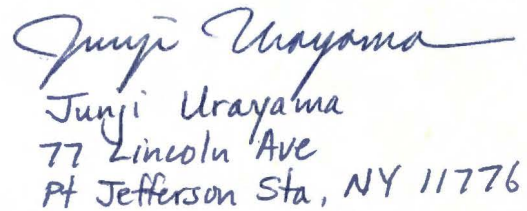 Junji Urayama
Junji Urayama
77 Lincoln Ave
Pt Jefferson Sta, NY 11776